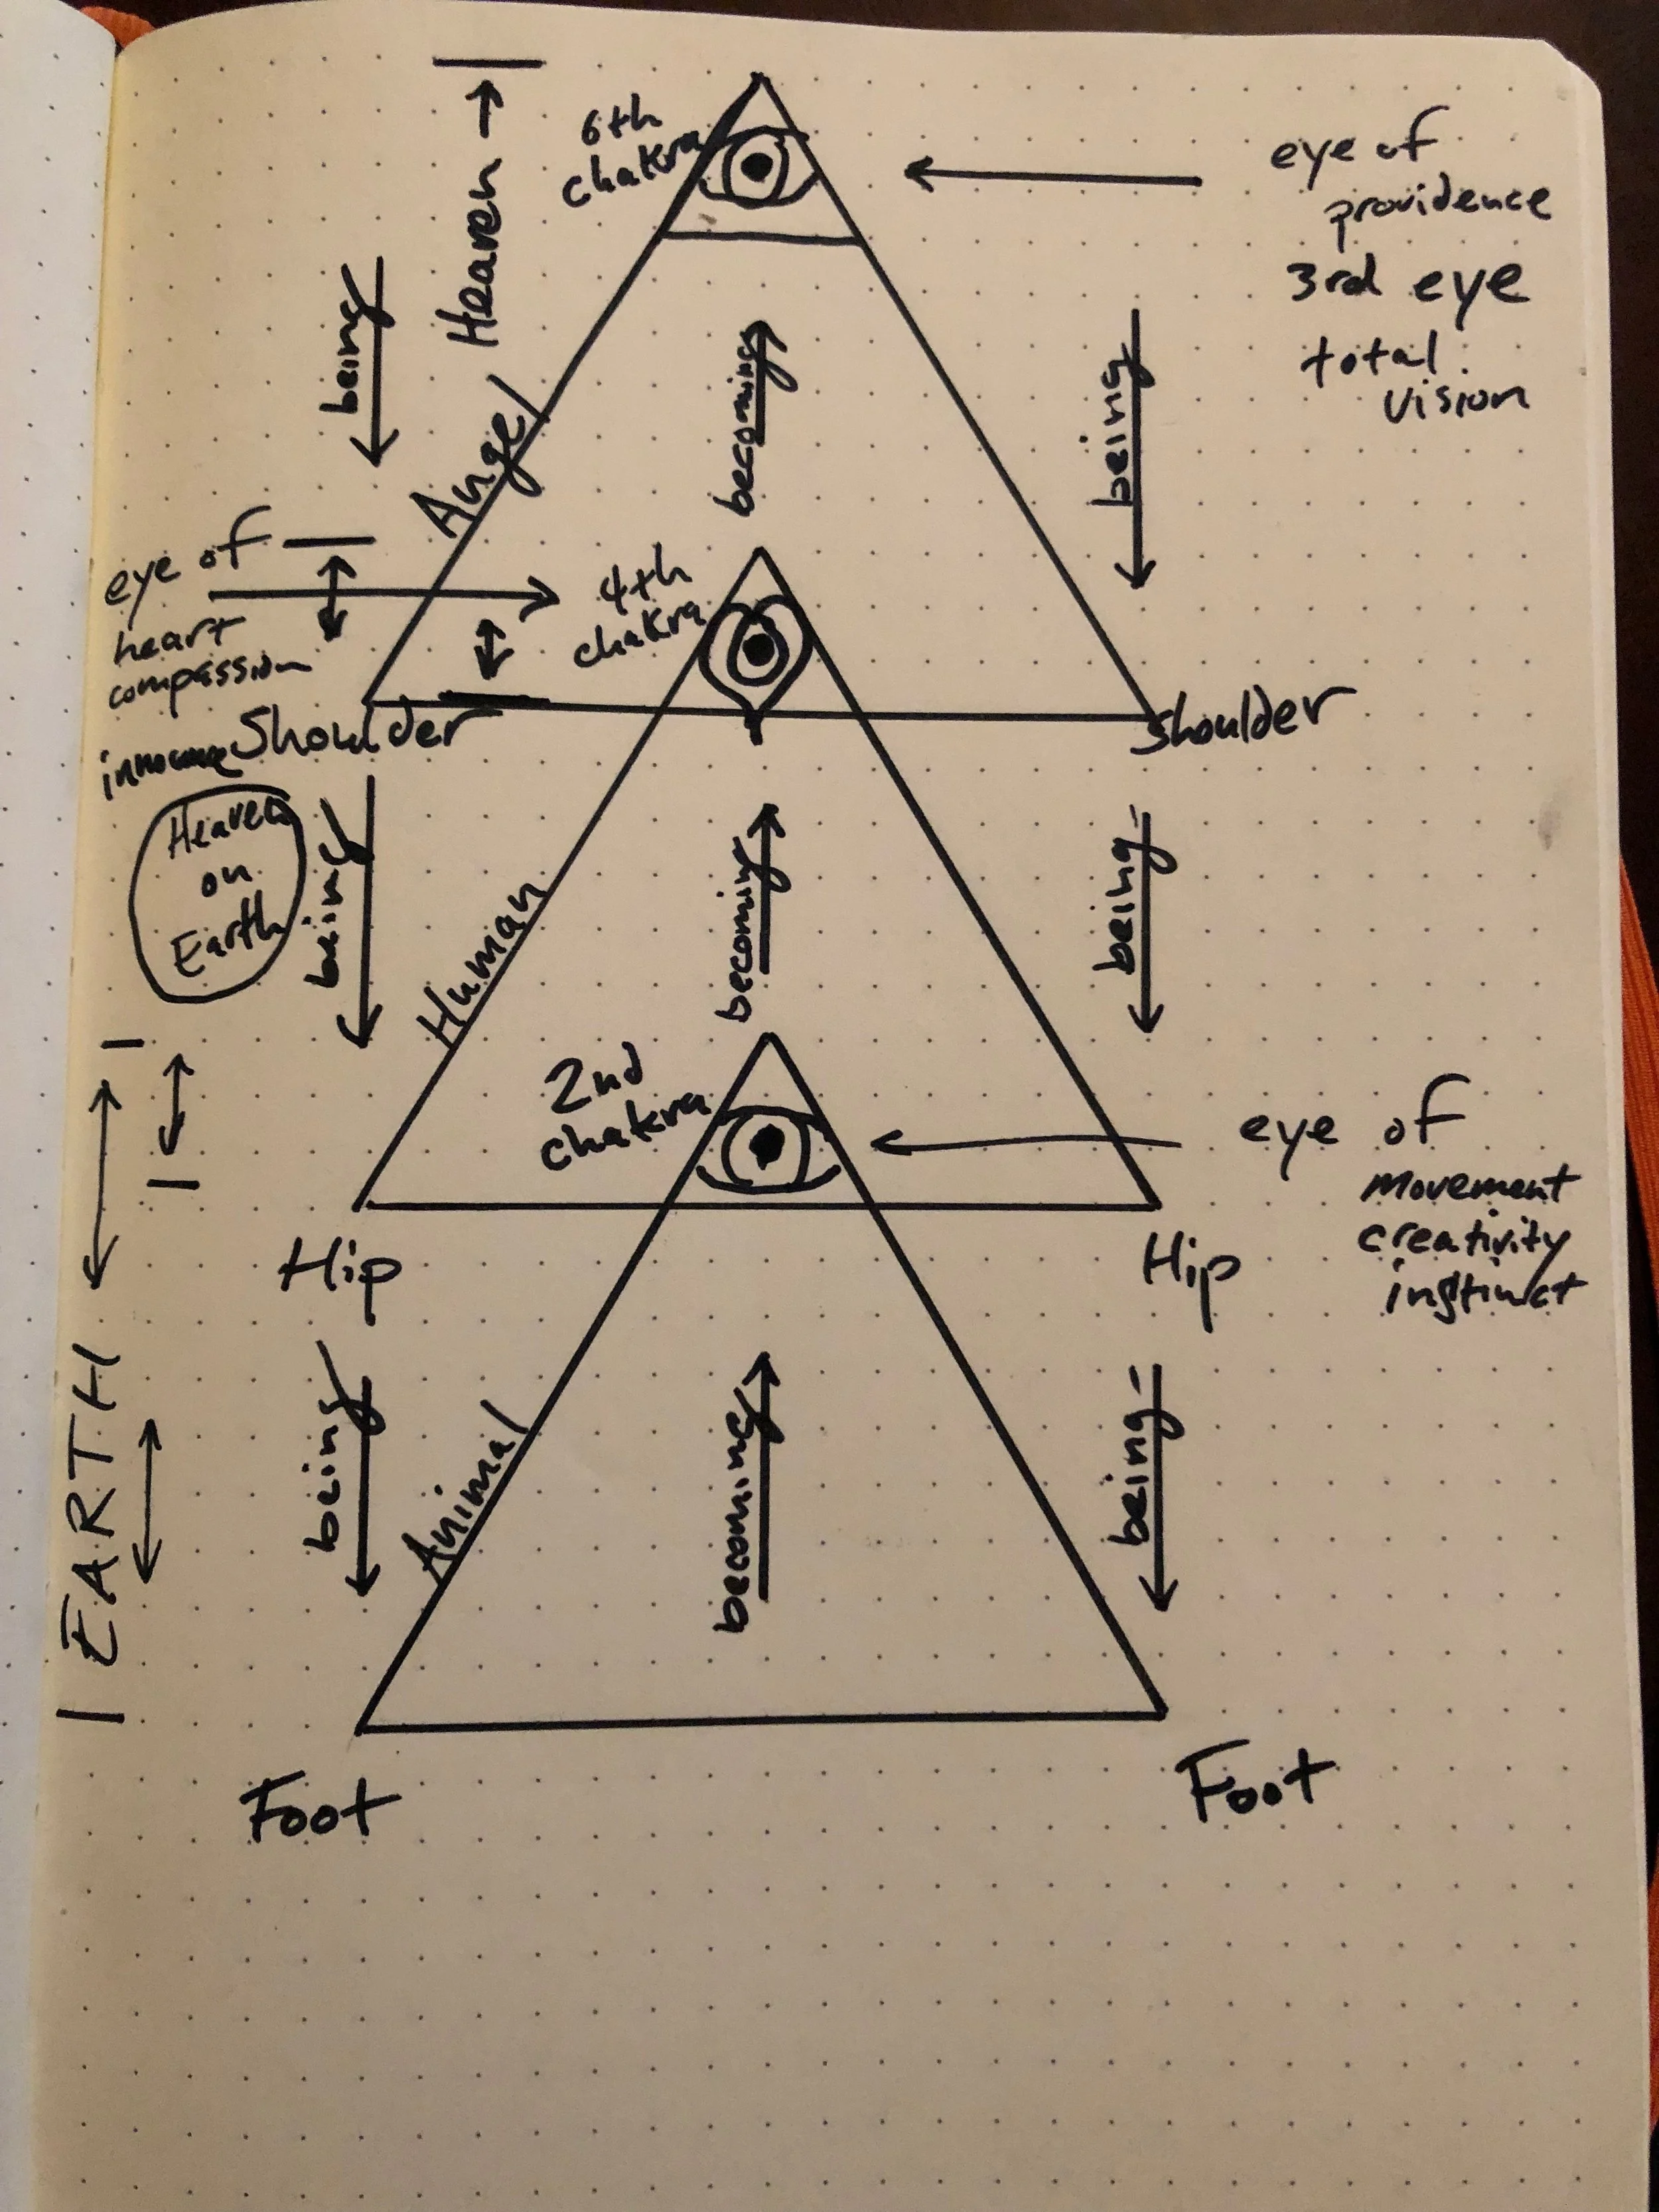 6th
chakra
Heaven
eye of
providence
3rd eye
total
vision
being
becoming
being
Angel
eye of
heart
compassion
4th
chakra
Shoulder
shoulder
Heaven
on
Earth
being
becoming
being
Human
2nd
chakra
eye of
movement
creativity
instinct
Hip
Hip
EARTH
being
becoming
being
Animal
Foot
Foot